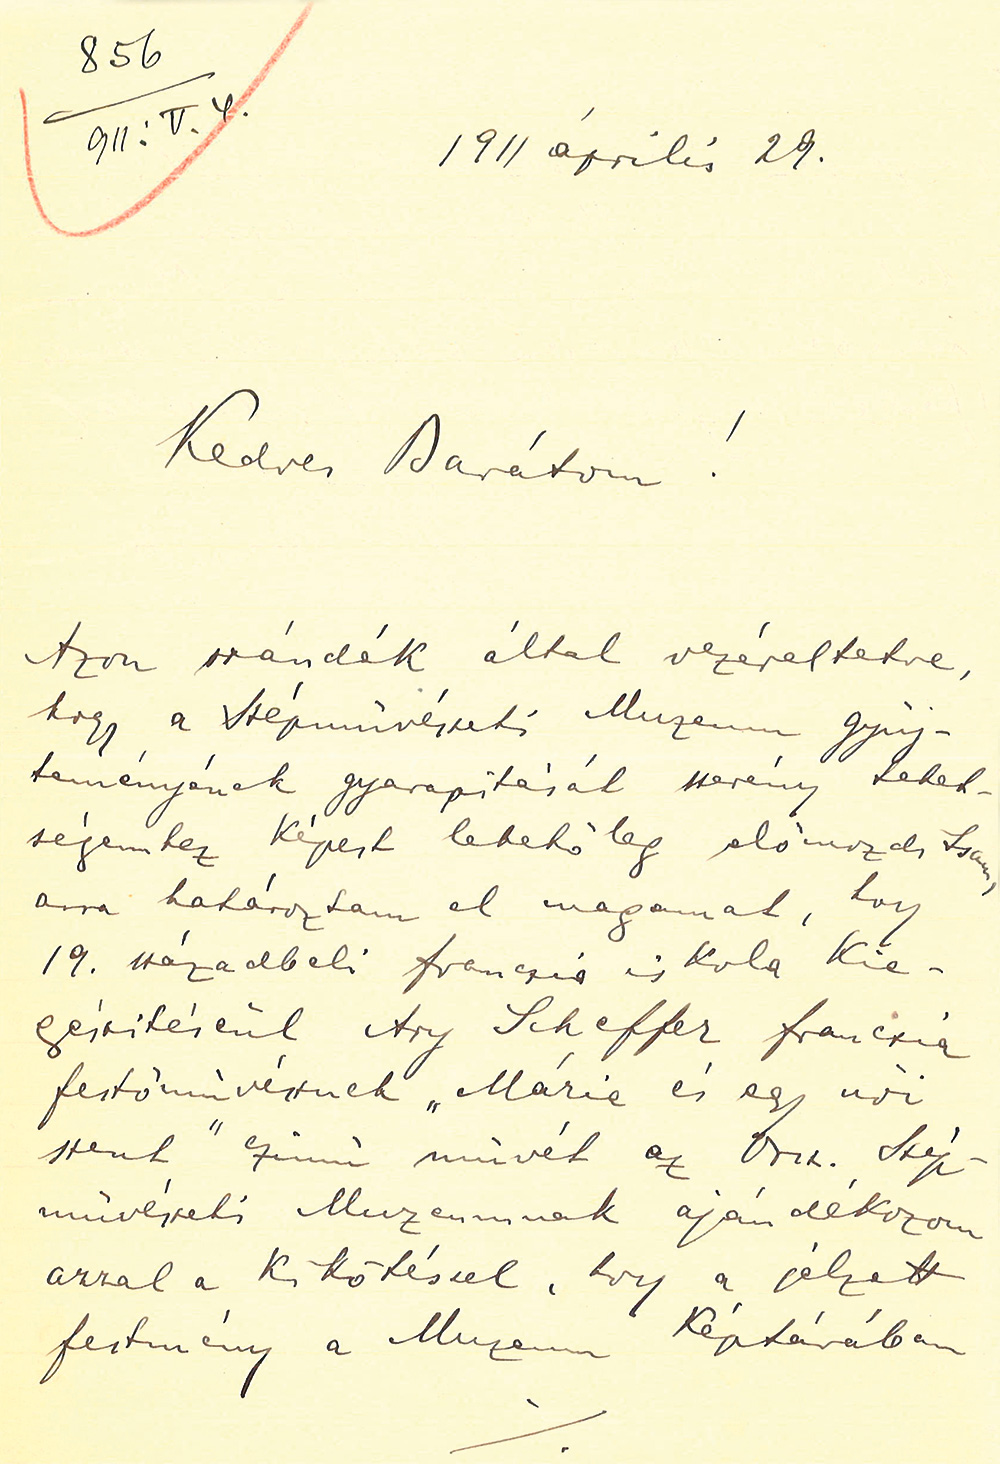 856
911: V. 4.
1911 április 29.
Kedves Barátom!
Azon szándék által vezéreltetve,
hogy a Szépművészeti Muzeum gyűj-
teményének gyarapitását szerény tehet-
ségemhez képest lehetőleg előmozditsam,
arra határoztam el magamat, hogy
19. századbeli franczia iskola kie-
gészitéséül Ary Scheffer franczia
festőművésznek „Márie és egy női
szent" czimü művét az Orsz. Szép-
művészeti Muzeumnak ajándékozom
azzal a kikötéssel, hogy a jelzett
festmény a Muzeum képtárában
./.